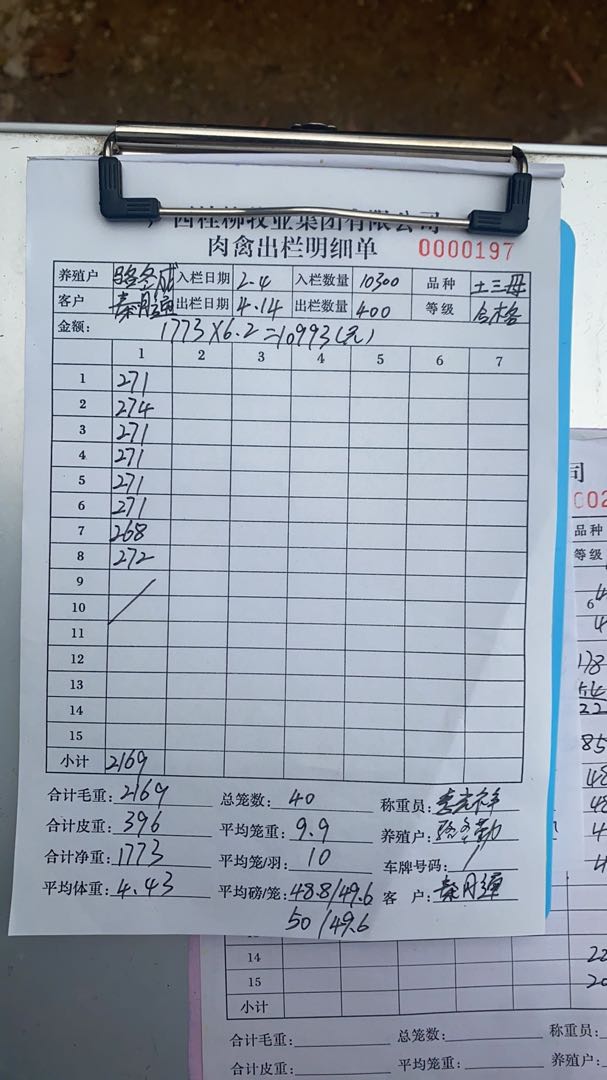 广西桂柳牧业集团有限公司
肉禽出栏明细单 0000197
养殖户 骆冬成 入栏日期 2.4 入栏数量 10300 品种 土三母
客户 秦月通 出栏日期 4.14 出栏数量 400 等级 合格
金额: 1773×6.2=10993(元)
1 2 3 4 5 6 7
1 271
2 274
3 271
4 271
5 271
6 271
7 268
8 272
9
10
11
12
13
14
15
小计 2169
合计毛重: 2169 总笼数: 40 称重员:
合计皮重: 396 平均笼重: 9.9 养殖户:
合计净重: 1773 平均笼/羽: 10 车牌号码: /
平均体重: 4.43 平均磅/笼: 48.8/49.6 客 户: 秦月通
50/49.6
司
002
品种
等级
14
15
小计
合计毛重: 总笼数: 称重员:
合计皮重: 平均笼重: 养殖户: